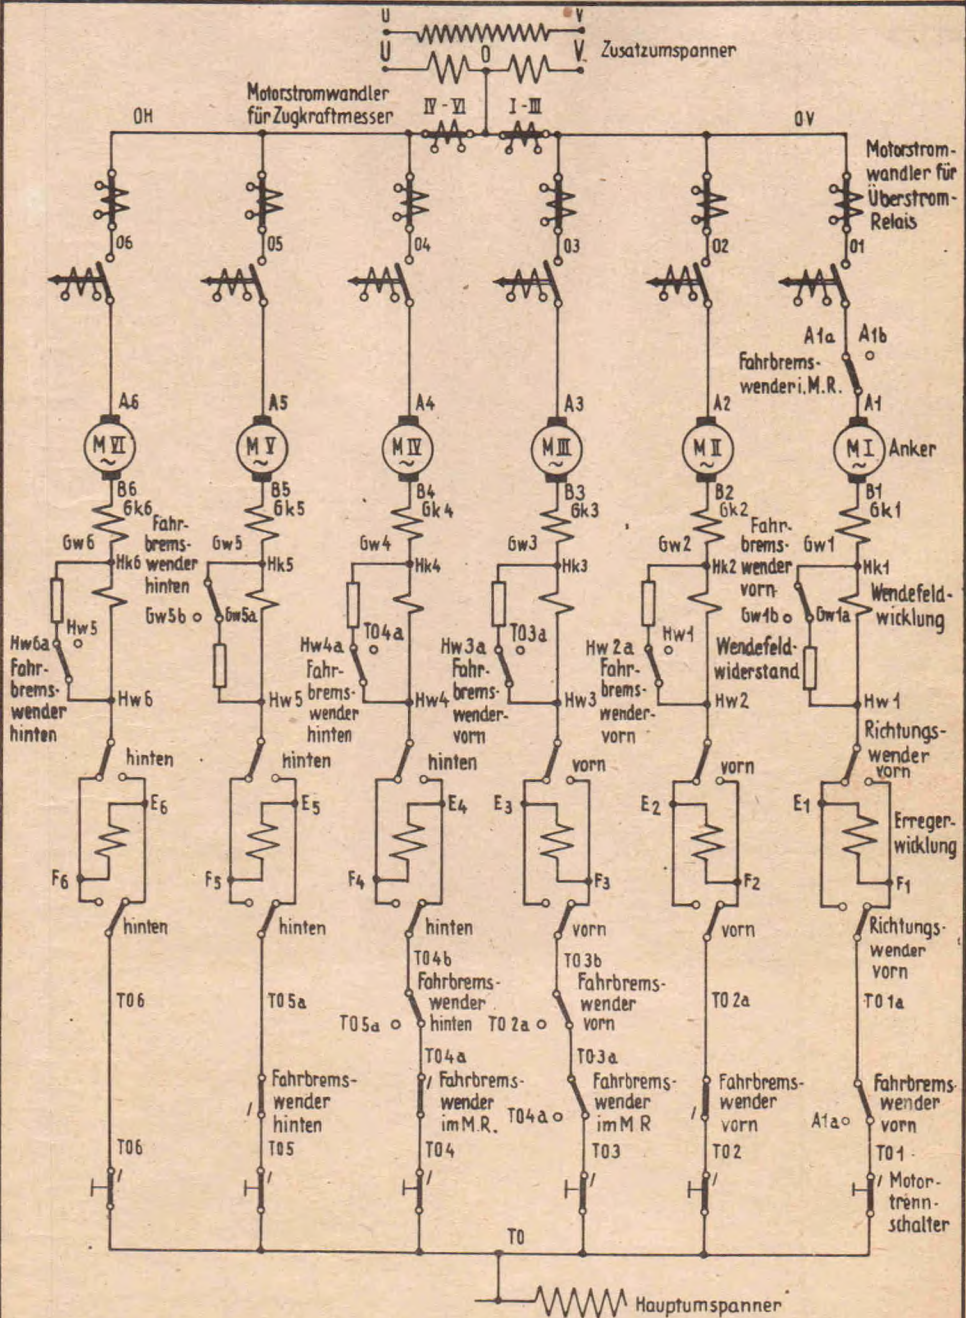 U V
U O V Zusatzumspanner
Motorstromwandler
für Zugkraftmesser
IV-VI I-III
OH OV
Motorstrom-
wandler für
Überstrom-
Relais
O6 O5 O4 O3 O2 O1
A1a A1b
Fahrbrems-
wender i. M.R.
A6 A5 A4 A3 A2 A1
M VI ~ M V ~ M IV ~ M III ~ M II ~ M I ~ Anker
B6 B5 B4 B3 B2 B1
Gk6 Gk5 Gk4 Gk3 Gk2 Gk1
Gw6 Gw5 Gw4 Gw3 Gw2 Gw1
Fahr-
brems-
wender
hinten
Fahr-
brems-
wender
vorn
Hk6 Hk5 Hk4 Hk3 Hk2 Hk1
Wendefeld-
wicklung
Gw5b Gw5a Gw1b Gw1a
Hw6a Hw5 Hw4a T04a Hw3a T03a Hw2a Hw1
Wendefeld-
widerstand
Fahr-
brems-
wender
hinten
Fahr-
brems-
wender
hinten
Fahr-
brems-
wender-
vorn
Fahr-
brems-
wender-
vorn
Hw6 Hw5 Hw4 Hw3 Hw2 Hw1
Richtungs-
wender
vorn
hinten hinten hinten vorn vorn
E6 E5 E4 E3 E2 E1
Erreger-
wicklung
F6 F5 F4 F3 F2 F1
hinten hinten hinten vorn vorn
Richtungs-
wender
vorn
T06 T05a T04b T03b T02a T01a
Fahrbrems-
wender
hinten
Fahrbrems-
wender
vorn
T05a T02a
T04a T03a
Fahrbrems-
wender
hinten
Fahrbrems-
wender
im M.R.
T04a
Fahrbrems-
wender
im M R
Fahrbrems-
wender
vorn
A1a
Fahrbrems-
wender
vorn
T06 T05 T04 T03 T02 T01
Motor-
trenn-
schalter
T0
Hauptumspanner